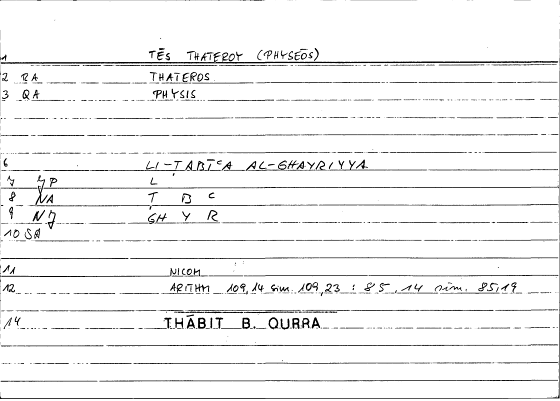 1 TĒS THATEROY (PHYSEŌS)
2 RA THATEROS
3 QA PHYSIS
6 LI-ṬABĪʿA AL-GHAYRIYYA
7 JP L
8 NA Ṭ B C
9 NJ GH Y R
10 SA
11 NICOM
12 ARITHM 109,14 sim. 109,23 : 85,14 sim. 85,19
14 THĀBIT B. QURRA